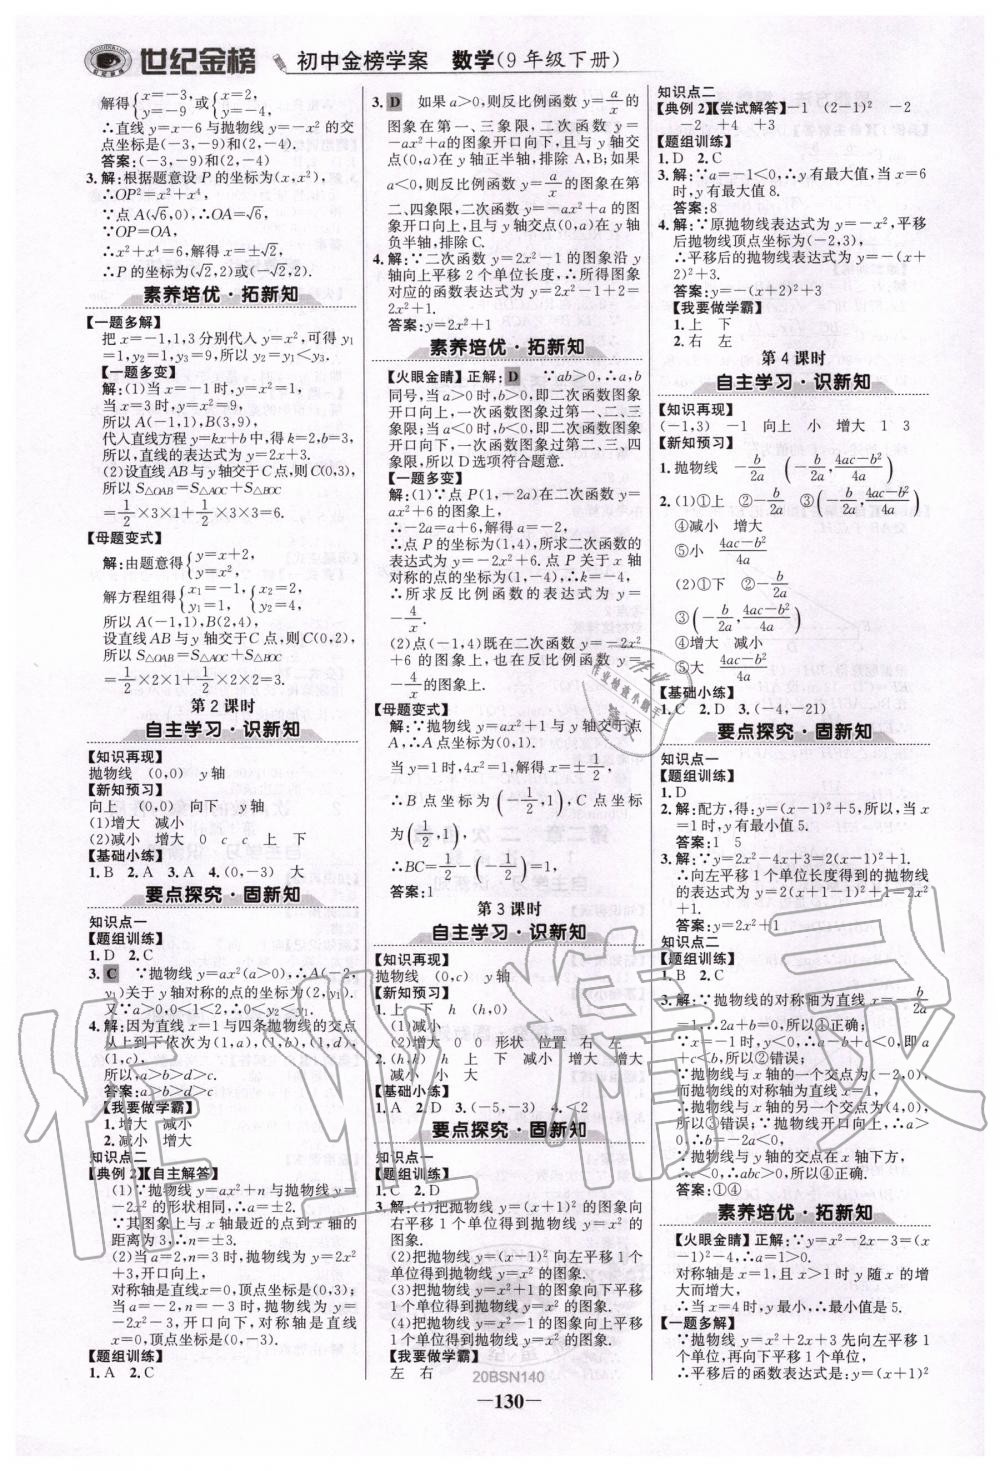 世纪金榜 初中金榜学案 数学(9年级下册)
解得{x=-3, y=-9 或{x=2, y=-4,
∴直线y=x-6与抛物线y=-x²的交
点坐标是(-3,-9)和(2,-4).
答案:(-3,-9)和(2,-4)
3.解:根据题意设P的坐标为(x,x²),
∴OP²=x²+x⁴,
∵点A(√6,0),∴OA=√6,
∵OP=OA,
∴x²+x⁴=6,解得x=±√2,
∴P的坐标为(√2,2)或(-√2,2).
素养培优·拓新知
【一题多解】
把x=-1,1,3分别代入y=x²,可得y₁
=1,y₂=1,y₃=9,所以y₁=y₂<y₃.
【一题多变】
解:(1)当x=-1时,y=x²=1,
当x=3时,y=x²=9,
所以A(-1,1),B(3,9),
代入直线方程y=kx+b中,得k=2,b=3,
所以,直线的表达式为y=2x+3.
(2)设直线AB与y轴交于C点,则C(0,3),
所以S△OAB=S△AOC+S△BOC
=1/2×3×1+1/2×3×3=6.
【母题变式】
解:由题意得{y=x+2, y=x²,
解方程组得{x₁=-1, y₁=1, {x₂=2, y₂=4,
所以A(-1,1),B(2,4),
设直线AB与y轴交于C点,则C(0,2),
所以S△OAB=S△AOC+S△BOC
=1/2×2×1+1/2×2×2=3.
第2课时
自主学习·识新知
【知识再现】
抛物线 (0,0) y轴
【新知预习】
向上 (0,0) 向下 y轴
(1)增大 减小
(2)减小 增大 0 c c 上 下
【基础小练】
1.B 2.A 3.A 4.(0,-3) 大
要点探究·固新知
知识点一
【题组训练】
1.D 2.C
3.C ∵抛物线y=ax²(a>0),∴A(-2,
y₁)关于y轴对称的点的坐标为(2,y₁).
又∵a>0,0<1<2,∴0<y₂<y₁.
4.解:因为直线x=1与四条抛物线的交点
从上到下依次为(1,a),(1,b),(1,d),
(1,c),
所以,a>b>d>c.
答案:a>b>d>c
【我要做学霸】
1.增大 减小
2.减小 增大
知识点二
【典例2】【自主解答】
(1)∵抛物线y=ax²+n与抛物线y=
-2x²的形状相同,∴a=±2,
∵其图象上与x轴最近的点到x轴的
距离为3,∴n=±3.
(2)当a=2,n=3时,抛物线为y=2x²
+3,开口向上,
对称轴是直线x=0,顶点坐标是(0,3);
当a=-2,n=-3时,抛物线为y=
-2x²-3,开口向下,对称轴是直线
x=0,顶点坐标是(0,-3).
【题组训练】
1.A 2.C
3.D 如果a>0,则反比例函数y=a/x的
图象在第一、三象限,二次函数y=
-ax²+a的图象开口向下,与y轴交
点(0,a)在y轴正半轴,排除A,B;如果
a<0,则反比例函数y=a/x的图象在第
二、四象限,二次函数y=-ax²+a的图
象开口向上,且与y轴交点(0,a)在y轴
负半轴,排除C.
4.解:∵二次函数y=2x²-1的图象沿y
轴向上平移2个单位长度,∴所得图象
对应的函数表达式为y=2x²-1+2=
2x²+1.
答案:y=2x²+1
素养培优·拓新知
【火眼金睛】正解:D ∵ab>0,∴a,b
同号,当a>0时,b>0,即二次函数图象
开口向上,一次函数图象过第一、二、三
象限;当a<0时,b<0,即二次函数图象
开口向下,一次函数图象过第二、三、四
象限,所以D选项符合题意.
【一题多变】
解:(1)∵点P(1,-2a)在二次函数y=
ax²+6的图象上,
∴-2a=a+6,解得a=-2,
∴点P的坐标为(1,4),所求二次函数的
表达式为y=-2x²+6.点P关于x轴
对称的点的坐标为(1,-4),∴k=-4,
∴所求反比例函数的表达式为y=
-4/x.
(2)点(-1,4)既在二次函数y=-2x²
+6的图象上,也在反比例函数y=
-4/x的图象上.
【母题变式】
解:∵抛物线y=ax²+1与y轴交于点
A,∴A点坐标为(0,1).
当y=1时,4x²=1,解得x=±1/2,
∴B点坐标为(-1/2,1),C点坐标
为(1/2,1),
∴BC=1/2-(-1/2)=1,
答案:1
第3课时
自主学习·识新知
【知识再现】
抛物线 (0,c) y轴
【新知预习】
1.上 下 h (h,0)
(1)减小
(2)增大 0 0 形状 位置 右 左
2.(h,k) h 上 下 减小 增大 增大
减小 小 大
【基础小练】
1.A 2.D 3.(-5,-3) 4.<2
要点探究·固新知
知识点一
【题组训练】
1.C 2.D
3.解:(1)把抛物线y=x²的图象向
右平移1个单位得到抛物线y=(x-1)²
的图象.
(2)把抛物线y=(x-1)²向左平移1个
单位得到抛物线y=x²的图象.
(3)把抛物线y=x²的图象向下平移
1个单位得到抛物线y=x²-1的图象.
(4)把抛物线y=x²-1的图象向上平移
1个单位得到抛物线y=x²的图象.
【我要做学霸】
左 右
知识点二
【典例2】【尝试解答】-1 (2-1)² -2
-2 +4 +3
【题组训练】
1.D 2.C
3.解:∵a=-1<0,∴y有最大值,当x=6
时,y有最大值8.
答案:8
4.解:∵原抛物线表达式为y=-x²,平移
后抛物线顶点坐标为(-2,3),
∴平移后的抛物线表达式为y=-(x+
2)²+3.
答案:y=-(x+2)²+3
【我要做学霸】
1.上 下
2.右 左
第4课时
自主学习·识新知
【知识再现】
(-1,3) -1 向上 小 增大 1 3
【新知预习】
1.抛物线 -b/2a (-b/2a,(4ac-b²)/4a)
2.(1)①上 ②-b/2a ③(-b/2a,(4ac-b²)/4a)
④减小 增大
⑤小 (4ac-b²)/4a
(2)①下 ②-b/2a
③(-b/2a,(4ac-b²)/4a)
④增大 减小
⑤大 (4ac-b²)/4a
【基础小练】
1.C 2.D 3.(-4,-21)
要点探究·固新知
知识点一
【题组训练】
1.D
2.解:配方,得:y=(x-1)²+5,所以,当x
=1时,y有最小值5.
答案:1 5
3.解:∵y=2x²-4x+3=2(x-1)²+1,
∴向左平移1个单位长度得到的抛物线
的表达式为y=2(x+1-1)²+1,
即y=2x²+1.
答案:y=2x²+1
知识点二
【题组训练】
1.B 2.C
3.解:∵抛物线的对称轴为直线x=-b/2a
=1,∴2a+b=0,所以①正确;
∵x=-1时,y<0,
∴a-b+c<0,所以②错误;
∵抛物线与x轴的一个交点为(-2,0),
而抛物线的对称轴为直线x=1,
∴抛物线与x轴的另一个交点为(4,0),
所以③错误;∵抛物线开口向上,∴a>
0,
∵抛物线与y轴的交点在x轴下方,
∴c<0,∴abc>0,所以④正确.
答案:①④
素养培优·拓新知
【火眼金睛】正解:∵y=x²-2x-3=(x-
1)²-4,∴a=1>0.
对称轴是x=1,∴x>1时y随x的增
大而增大,
∴当x=4时,y最小,∴最小值是5.
【一题多解】
∵抛物线y=x²+x+2先向左平移1个
单位,再向下平移1个单位,
∴平移后的抛物线表达式是:y=(x+1)²
20BSN140
—130—
作业精灵